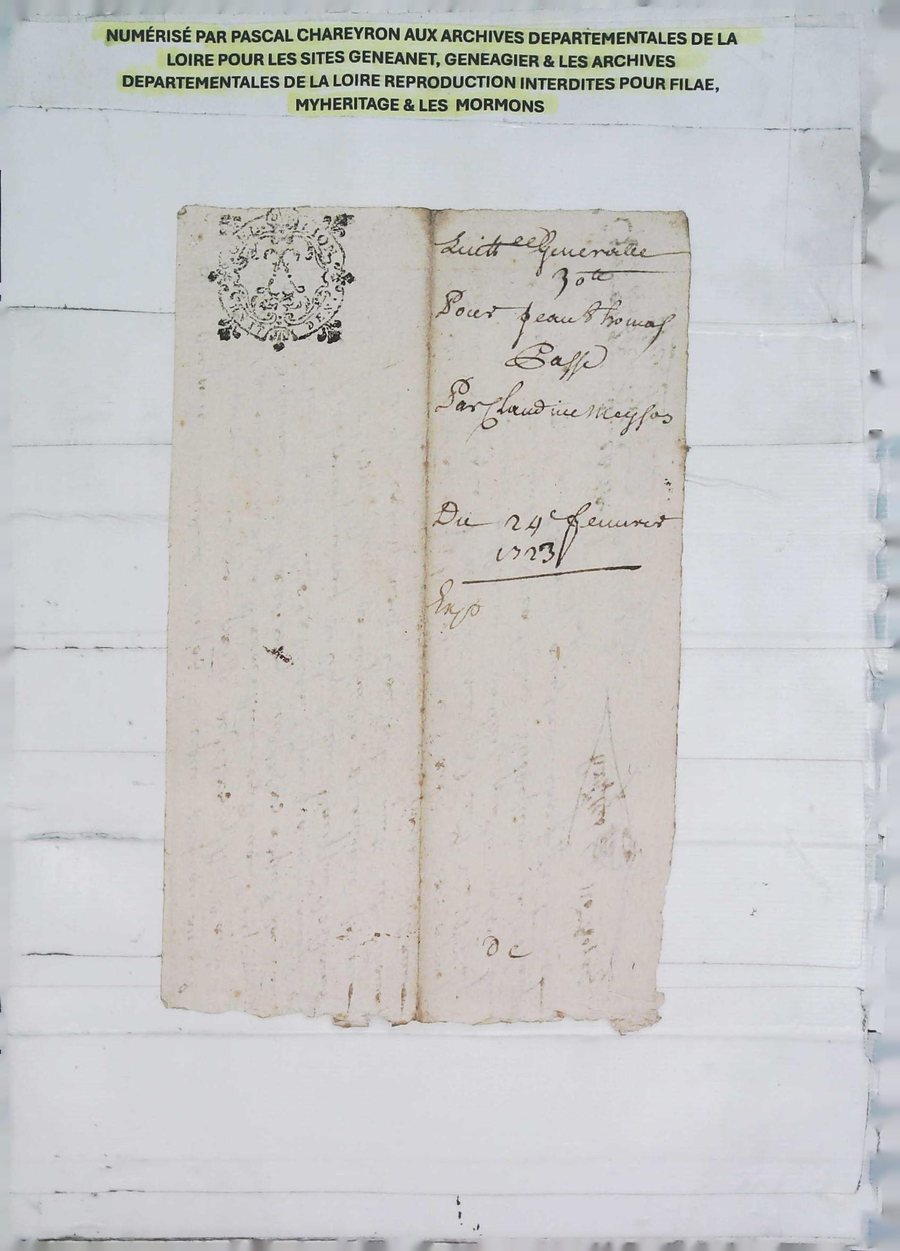 NUMÉRISÉ PAR PASCAL CHAREYRON AUX ARCHIVES DEPARTEMENTALES DE LA
LOIRE POUR LES SITES GENEANET, GENEAGIER & LES ARCHIVES
DEPARTEMENTALES DE LA LOIRE REPRODUCTION INTERDITES POUR FILAE,
MYHERITAGE & LES MORMONS
Quitt.ce Generalle
30tt
Pour Jean Thomas
Passé
Par Claudine Meysson
Du 24e feuurier
1723
Exp